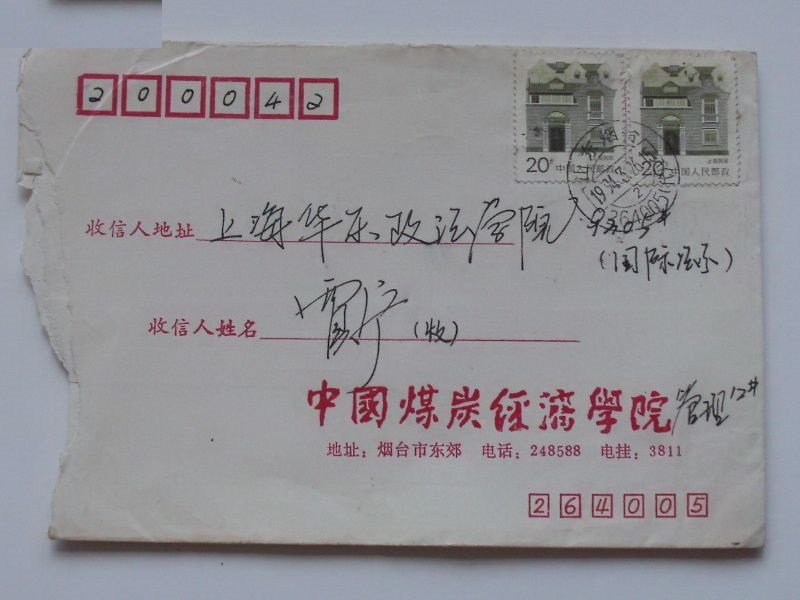 200042
20分 上海民居 中国人民邮政
20分 上海民居 中国人民邮政
山东烟台
264005
收信人地址 上海华东政法学院
(国际法系)
收信人姓名 (收)
中國煤炭經濟學院 管理
地址：烟台市东郊 电话：248588 电挂：3811
264005